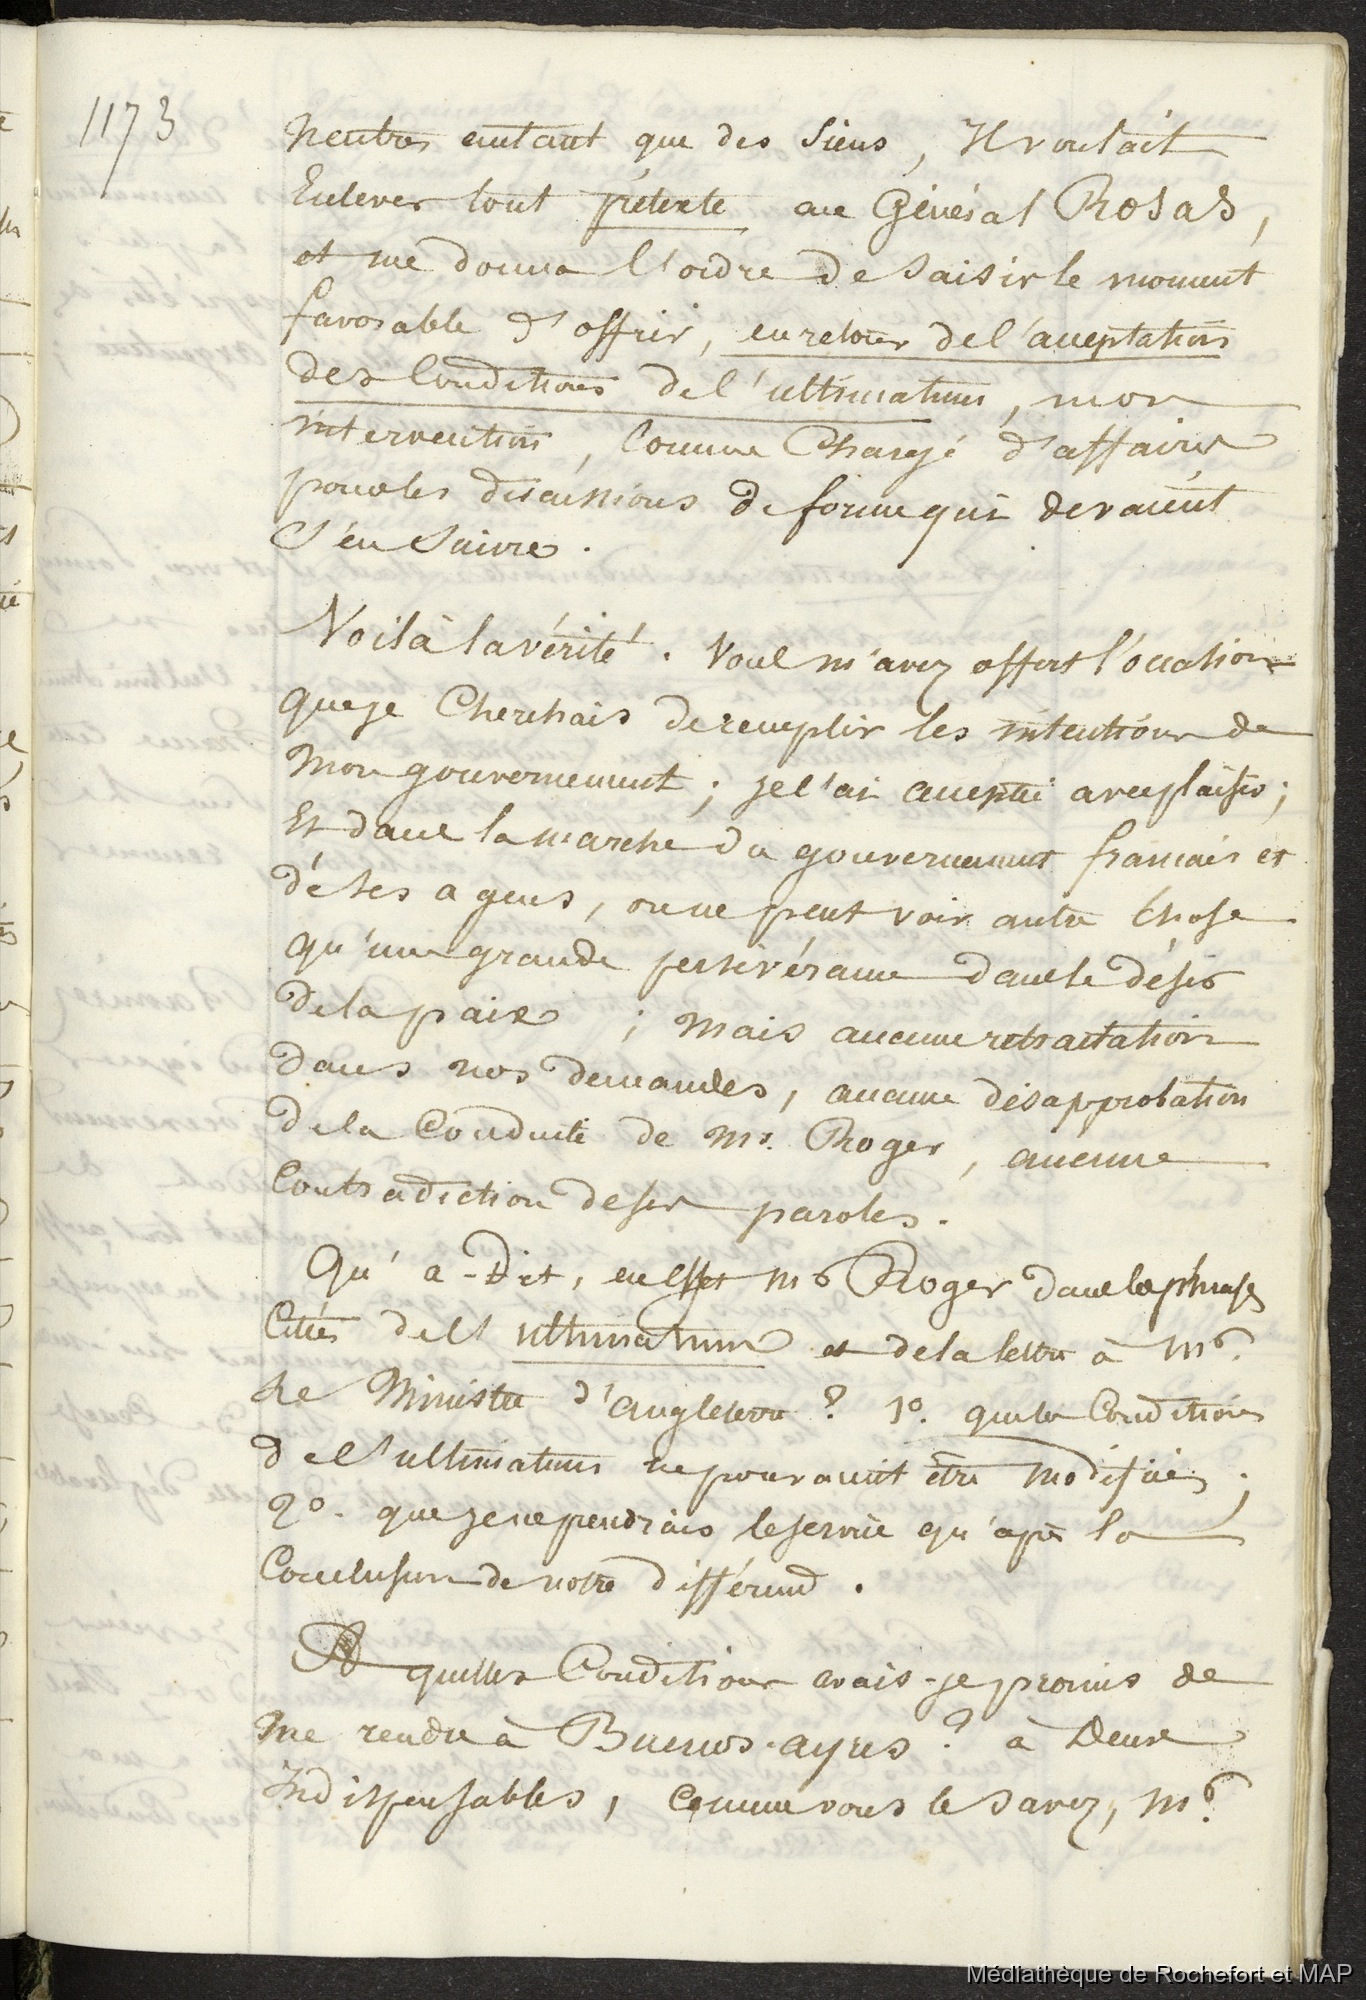 1173
neutres autant que des siens, Il voulait
Enlever tout prétexte au Général Rosas,
et me donna l'ordre de saisir le moment
favorable d'offrir, en retour de l'acceptation
des Conditions de l'ultimatum, mon
intervention, Comme Chargé d'affaires
pour les discussions de forme qui devaient
S'en Suivre.
Voilà la vérité. Vous m'avez offert l'occasion
que je Cherchais de remplir les intentions de
Mon gouvernement ; je l'ai acceptée avec plaisir ;
Et dans la marche du gouvernement français et
de ses agens, on ne peut voir autre Chose
qu'une grande persévérance dans le désir
de la paix ; mais aucune retractation
dans nos demandes, aucune désapprobation
de la Conduite de Mr. Roger, aucune
Contradiction de ses paroles.
Qu'a-Dit, en effet Mr Roger dans les phrases
Citées de l'ultimatum et de la lettre à Mr.
Le Ministre d'angleterre ? 1o. que les Conditions
de l'ultimatum ne pouvaient être modifiées ;
2o. que je ne prendrais le service qu'après la
Conclusion de notre différend.
A quelles Conditions avais-je promis de
me rendre à Buenos-ayres ? à Deux
Indispensables, Comme vous le savez, Mr.
Médiathèque de Rochefort et MAP